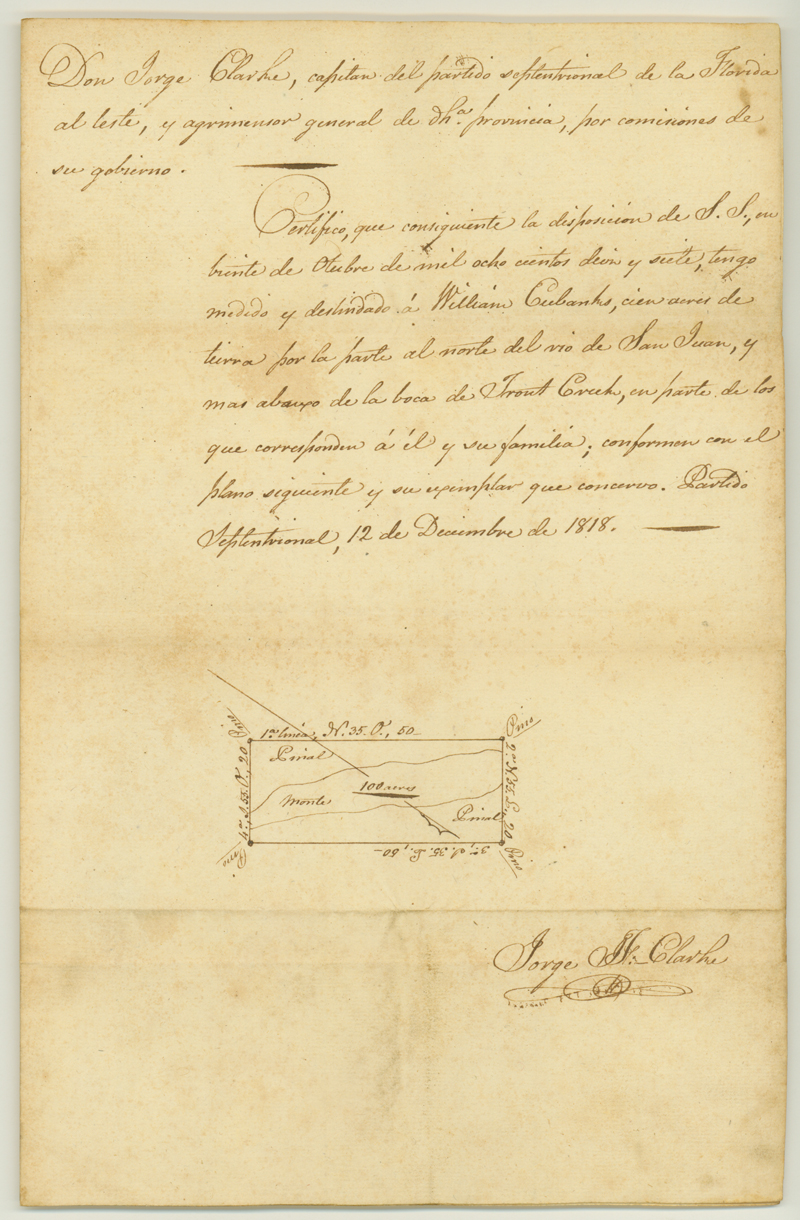 Don Jorge Clarke, capitan del partido septentrional de la Florida
al leste, y agrimensor general de dha. provincia, por comisiones de
su gobierno.
Certifico, que consiguiente la disposicion de S. S., en
beinte de Otubre de mil ocho cientos diez y siete, tengo
medido y deslindado á William Eubanks, cien acres de
tierra por la parte al norte del rio de San Juan, y
mas abaxo de la boca de Trout Creek, en parte de los
que corresponden á él y su familia; conformen con el
plano siguiente y su exemplar que concervo. Partido
Septentrional, 12 de Deciembre de 1818.
1a. linea, N. 35. O., 50
Pino
Pino
Pinal
4a. S. 55. O., 20
2a. N. 55. E., 20
100 acres
Monte
Pinal
3a. S. 35. E., 50
Pino
Pino
Jorge J. F. Clarke